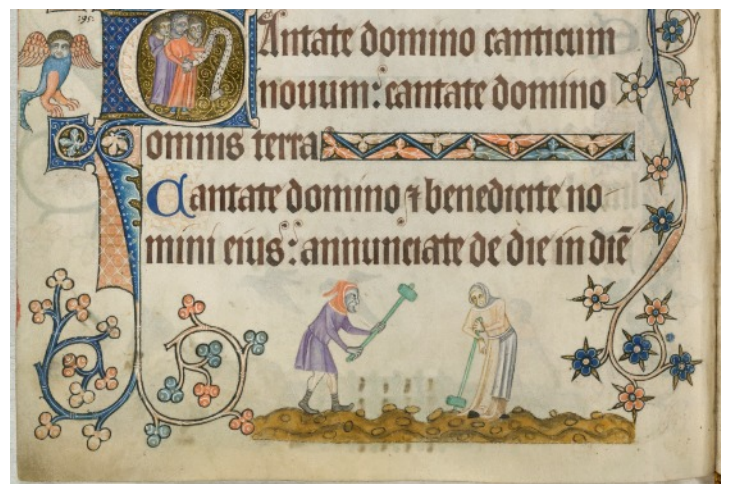 Cantate domino canticum
nouum: cantate domino
omnis terra
Cantate domino ⁊ benedicite no
mini eius: annunciate de die in diē